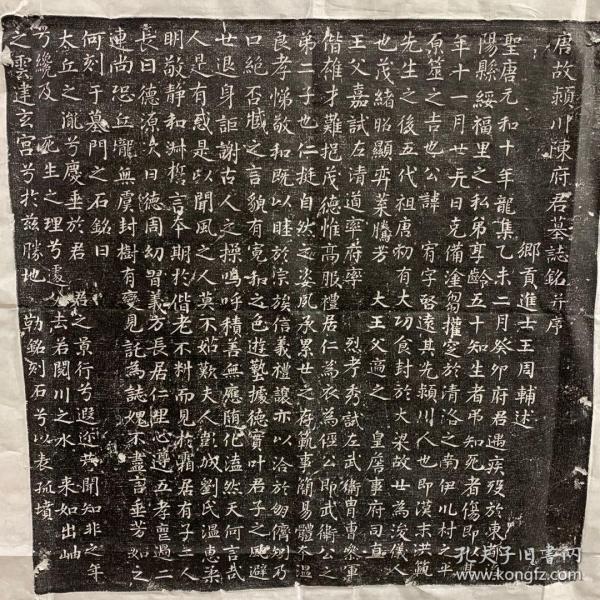 唐故潁川陳府君墓誌銘并序
鄉貢進士王周輔述
聖唐元和十年龍集乙未二月癸卯府君遇疾歿於東都
陽縣綏福里之私弟享齡五十知生者弔知死者傷即其
年十一月廿元日克備塗芻權窆於清洛之南伊川村之平
原筮之吉也公諱 宥字弘遠其先潁川人也即漢末洪範
先生之後五代祖唐初有大功食封於大梁故世為浚儀人
也茂緒昭顯弈葉騰芳 大王父 皇詹事府司直
王父嘉試左清道率府率 烈考秀試左武衛冑曹參軍
偕雄才難抱茂德惟高服禮居仁為衣為 公即武衛公之
弟二子也仁挺自然之姿夙承累世之 執事簡易體太溫
良孝悌敬和既以睦於宗族信義禮讓亦以洽於朋儕
口絕否臧之言貌有寬和之色遊藝據德實叶君子之 避
世退身詎謝古人之操嗚呼積善無應隨化溘然天何言哉
人是有慼是以聞風之人莫不 歎夫人彭城劉氏溫惠柔
明敬靜和淑誓言本期於偕老不料而見於霜居有子二人
長曰德源次曰德周幼習義方長居仁里心遵五孝
連尚恐丘壠無虞封樹有 見託為誌媿不盡言垂芳
何刻于墓門之石銘曰 君之景行兮遐迩共聞知非之年
太丘之胤兮慶垂於君 去若閱川之水 來如出岫
兮纔及 死生之理兮 勒銘刻石兮以表孤墳
之雲建玄宮兮於茲勝地
孔夫子旧书网
www.kongfz.com